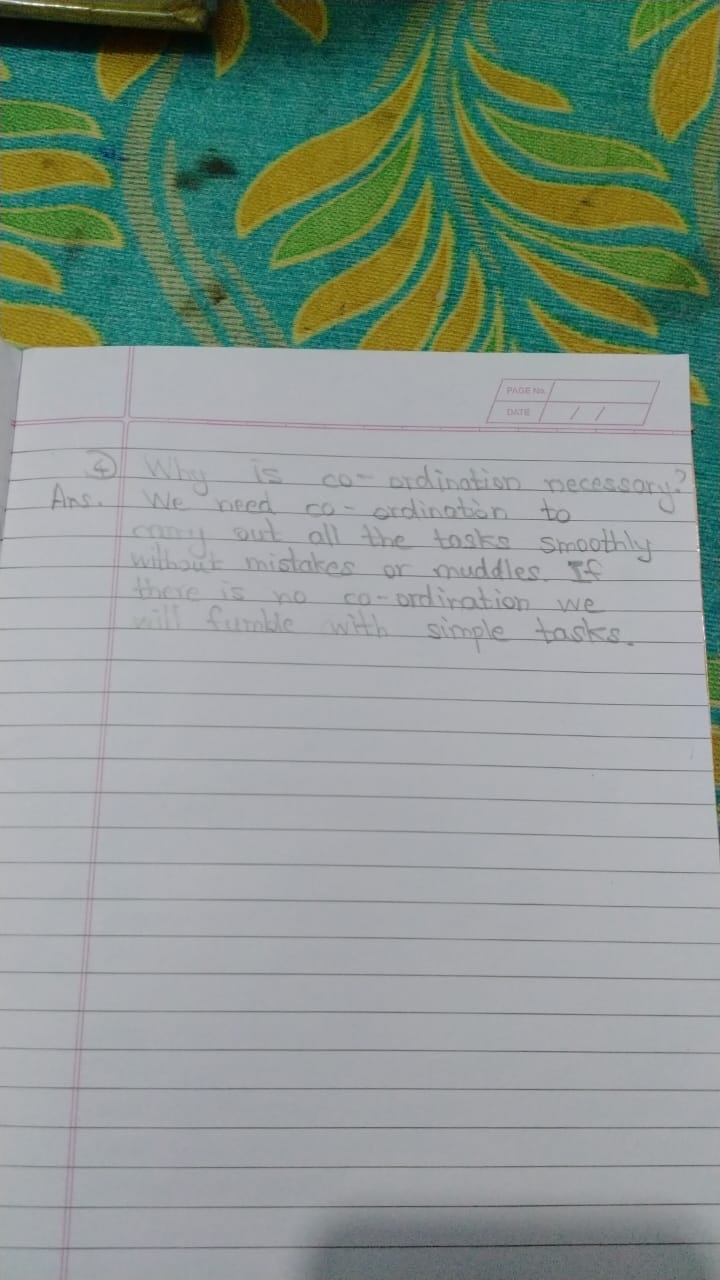 PAGE No.
DATE / /
④ Why is co-ordination necessary?
Ans. We need co-ordination to
carry out all the tasks smoothly
without mistakes or muddles. If
there is no co-ordination we
will fumble with simple tasks.